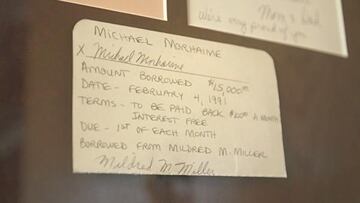 Mom & Dad
We're very proud of you
MICHAEL MORHAIME
X Michael Morhaime
AMOUNT BORROWED $15,000.00
DATE - FEBRUARY 4, 1991
TERMS - TO BE PAID BACK A MONTH
INTEREST FREE
DUE - 1ST OF EACH MONTH
BORROWED FROM MILDRED M. MILLER
Mildred M. Miller